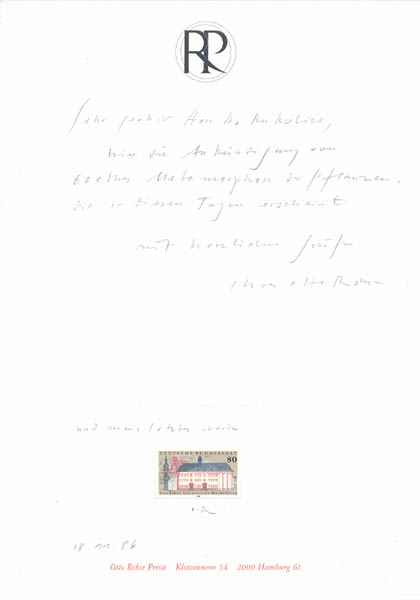 RP
Sehr geehrter Herr
hier die Ankündigung von
Goethes Metamorphose der Pflanzen,
die in diesen Tagen erscheint
mit herzlichem Gruß
Ihr Otto Rohse
und mein letztes
DEUTSCHE BUNDESPOST
80
600 Jahre Universität Heidelberg
18.11.86
Otto Rohse Presse Klotzenmoor 54 2000 Hamburg 61